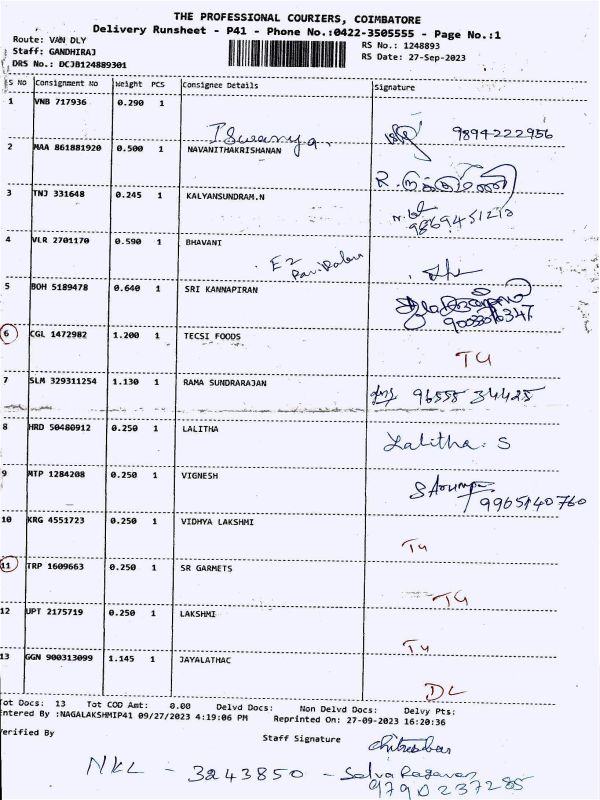 THE PROFESSIONAL COURIERS, COIMBATORE
Delivery Runsheet - P41 - Phone No.:0422-3505555 - Page No.:1
Route: VAN DLY
RS No.: 1248893
Staff: GANDHIRAJ
RS Date: 27-Sep-2023
DRS No.: DCJB124889301
S No Consignment No Weight PCS Consignee Details Signature
1 VNB 717936 0.290 1
9894222956
2 MAA 861881920 0.500 1 NAVANITHAKRISHANAN
3 TNJ 331648 0.245 1 KALYANSUNDRAM.N
9869451210
4 VLR 2701170 0.590 1 BHAVANI
E2
5 BOH 5189478 0.640 1 SRI KANNAPIRAN
6 CGL 1472982 1.200 1 TECSI FOODS
T4
7 SLM 329311254 1.130 1 RAMA SUNDRARAJAN
96555 34425
8 HRD 50480912 0.250 1 LALITHA
Lalitha. S
9 MTP 1284208 0.250 1 VIGNESH
9965140760
10 KRG 4551723 0.250 1 VIDHYA LAKSHMI
T4
11 TRP 1609663 0.250 1 SR GARMETS
T4
12 UPT 2175719 0.250 1 LAKSHMI
T4
13 GGN 900313099 1.145 1 JAYALATHAC
DL
Tot Docs: 13 Tot COD Amt: 0.00 Delvd Docs: Non Delvd Docs: Delvy Pts:
Entered By :NAGALAKSHMIP41 09/27/2023 4:19:06 PM Reprinted On: 27-09-2023 16:20:36
Verified By Staff Signature
NKL - 3243850 - Selva Ragavan
9790237285